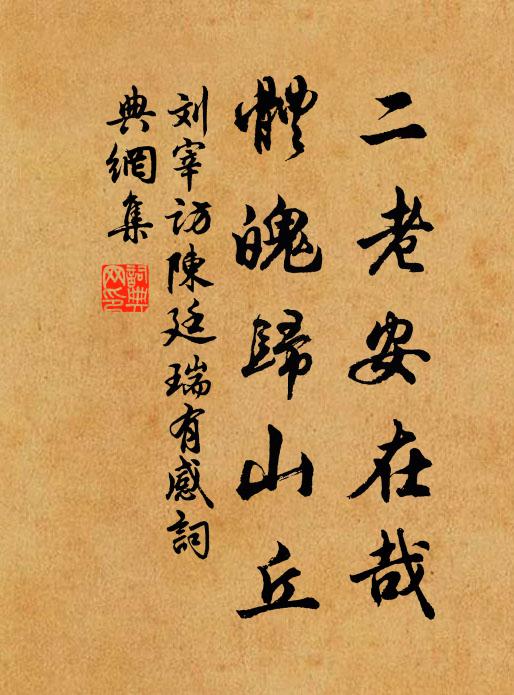 二老安在哉
體魄歸山丘
刘宰访陳廷瑞有感詞
典網集
詞典网印